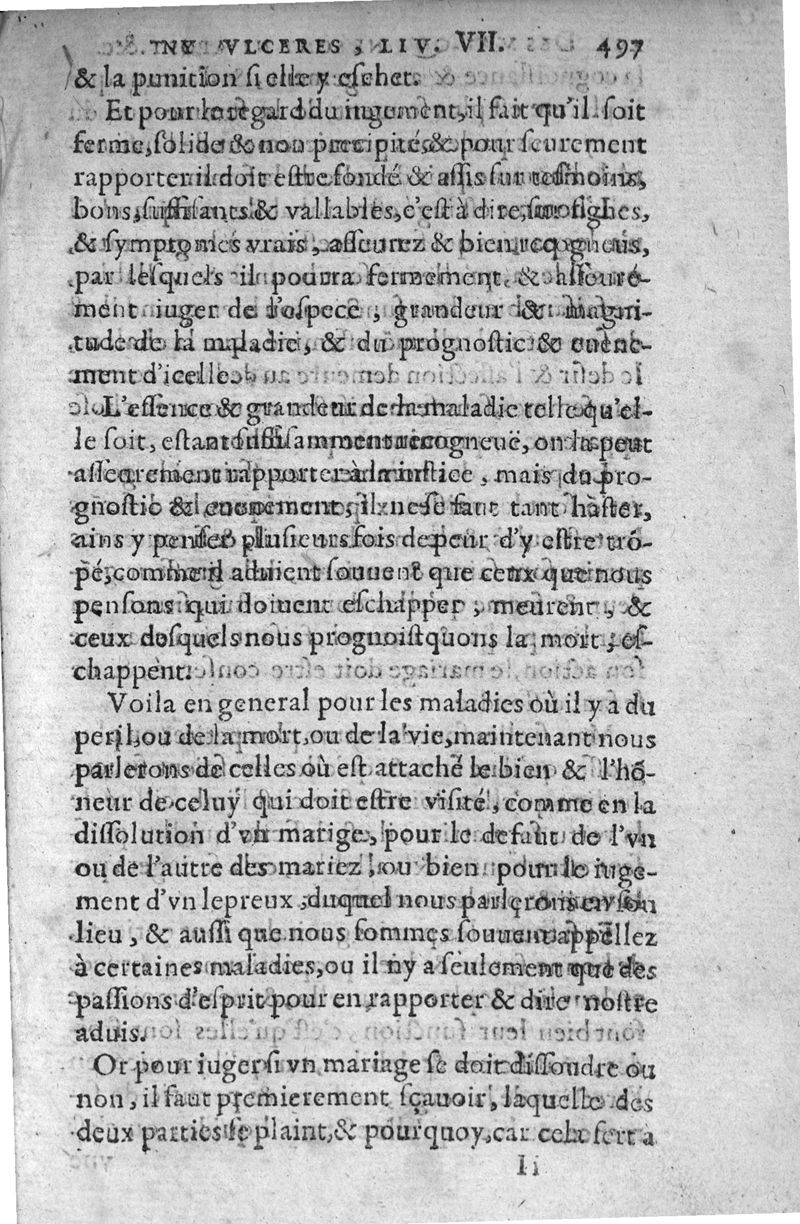 ET VLCERES, LIV. VII. 497
& la punition si elle y eschet.
Et pour le regard du iugement, il fait qu'il soit
ferme, solide & non precipité, & pour seurement
rapporter il doit estre fondé & assis sur tesmoins,
bons, suffisants & vallables, c'est à dire, sur signes,
& symptomes vrais, asseurez & bien recogneus,
par lesquels il pourra fermement & asseuré-
ment iuger de l'espece, grandeur & magni-
tude de la maladie, & du prognostic & euene-
ment d'icelle.
L'essence & grandeur de la maladie telle qu'el-
le soit, estant suffisamment recogneuë, on la peut
asseurement rapporter à la iustice, mais du pro-
gnostic & euenement, il ne se faut tant haster,
ains y penser plusieurs fois de peur d'y estre trō-
pé, comme il aduient souuent que ceux que nous
pensons qui doiuent eschapper, meurent, &
ceux desquels nous prognoistquons la mort, es-
chappent.
Voila en general pour les maladies où il y a du
peril, ou de la mort, ou de la vie, maintenant nous
parlerons de celles où est attaché le bien & l'hō-
neur de celuy qui doit estre visité, comme en la
dissolution d'vn marige, pour le defaut de l'vn
ou de l'autre des mariez, ou bien pour le iuge-
ment d'vn lepreux, duquel nous parlerons en son
lieu, & aussi que nous sommes souuent appellez
à certaines maladies, ou il ny a seulement que des
passions d'esprit pour en rapporter & dire nostre
aduis.
Or pour iuger si vn mariage se doit dissoudre ou
non, il faut premierement sçauoir, laquelle des
deux parties se plaint, & pourquoy, car cela sert à
Ii